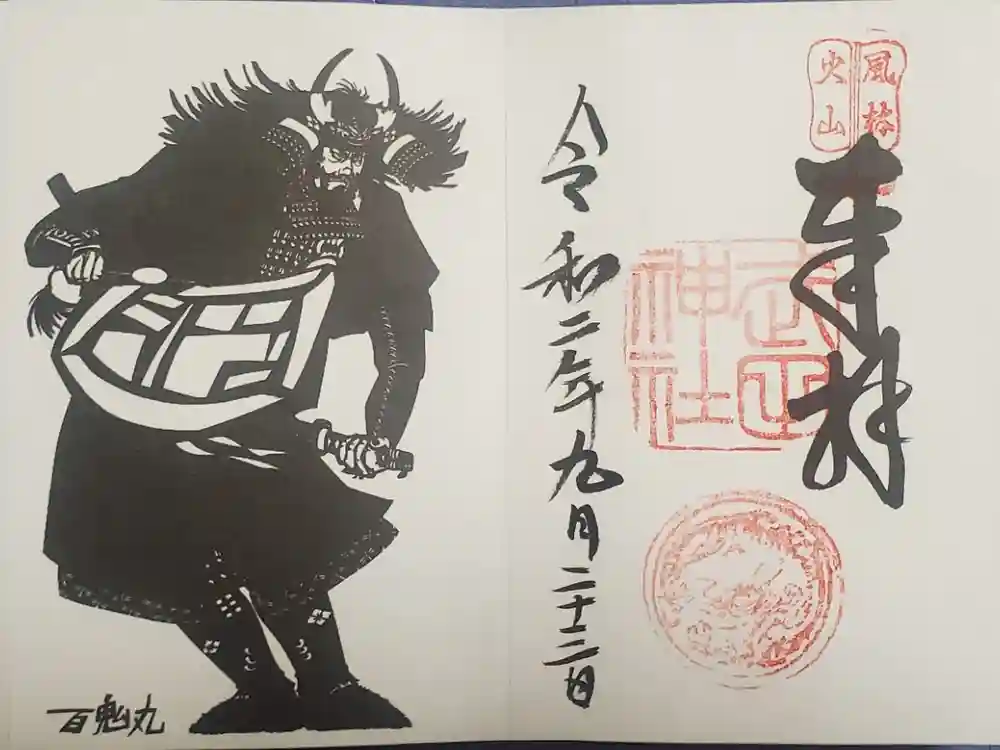 風林
火山
奉拝
武田
神社
令和二年九月二十三日
百鬼丸